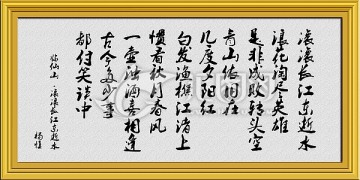 滚滚长江东逝水
浪花淘尽英雄
是非成败转头空
青山依旧在
几度夕阳红
白发渔樵江渚上
惯看秋月春风
一壶浊酒喜相逢
古今多少事
都付笑谈中
临仙山·滚滚长江东逝水
杨慎